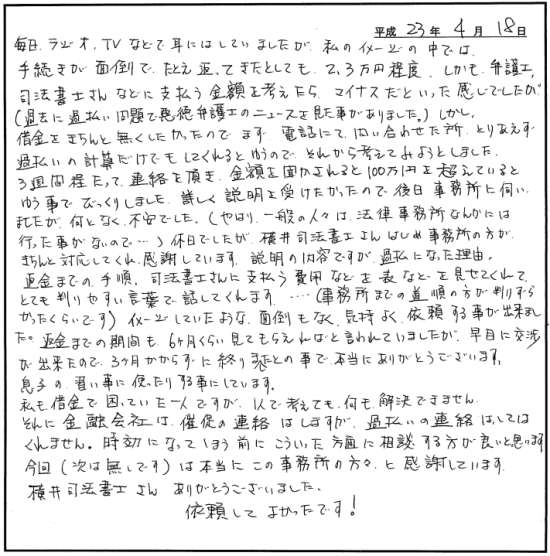 平成 23年 4月 18日
毎日、ラジオ、TVなどで耳にはしていましたが、私のイメージの中では、
手続きが面倒で、たとえ返ってきたとしても、2、3万円程度、しかも、弁護士、
司法書士さんなどに支払う金額を考えたら、マイナスだといった感じでしたが
(過去に過払い問題で悪徳弁護士のニュースを見た事がありました。)しかし、
借金をきちんと無くしたかったのでまず、電話にて、問い合わせた所、とりあえず
過払いの計算だけでもしてくれるとゆうので、それから考えてみようとしました。
3週間程たって、連絡を頂き、金額を聞かされると100万円を超えていると
ゆう事で、びっくりしました。詳しく説明を受けたかったので、後日事務所に伺い
ましたが、何となく、不安でした。(やはり、一般の人々は、法律事務所なんかには
行った事がないので…)休日でしたが、横井司法書士さんはじめ事務所の方が、
きちんと対応してくれ、感謝しています。説明の内容ですが、過払になった理由。
返金までの手順、司法書士さんに支払う費用などを表などを見せてくれて、
とても判りやすい言葉で話してくれます。……(事務所までの道順の方が判りずら
かったくらいです) イメージしていたような、面倒もなく、気持よく、依頼する事が出来まし
た。返金までの期間も、6ヶ月くらい見てもらえればと言われていましたが、早目に交渉
が出来たので、3ヶ月かからずに終りましたとの事で、本当にありがとうございます。
息子の習い事に使ったりする事にしています。
私も借金で困っていた一人ですが、1人で考えても、何も解決できません。
それに金融会社は、催促の連絡はしますが、過払いの連絡はしては
くれません。時効になってしまう前にこういった方面に相談する方が良いと思います
今回(次は無しです)は本当にこの事務所の方々に感謝しています。
横井司法書士さん ありがとうございました。
依頼してよかったです!